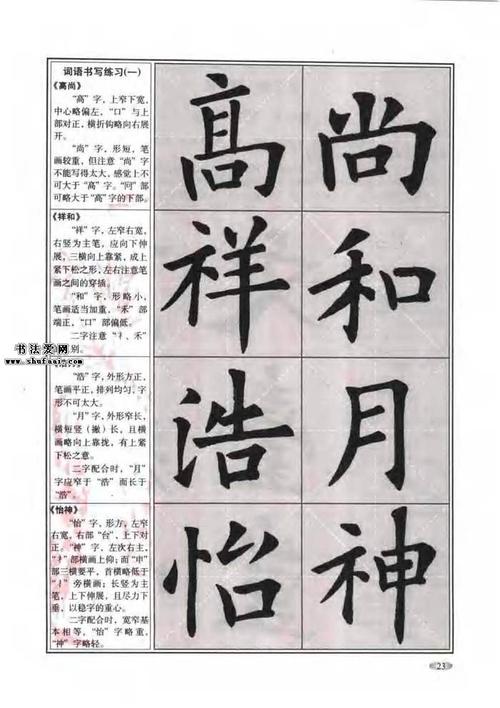 词语书写练习(一)
《高尚》
“高”字，上窄下宽，
中心略偏左，“口”与上
部对正，横折钩略向右展
开。
“尚”字，形短，笔
画较重，但注意“尚”字
不能写得太大，感觉上不
可大于“高”字。“冋”部
可略大于“高”字的下部。
《祥和》
“祥”字，左窄右宽，
右竖为主笔，应向下伸
展，三横向上靠紧，成上
紧下松之形，左右注意笔
画之间的穿插。
“和”字，形略小，
笔画适当加重，“禾”部
端正，“口”部偏低。
二字注意“礻、禾”
别。
书法爱网
www.shufaair.com
“浩”字，外形方正，
笔画平正，排列均匀，字
形不可太大。
“月”字，外形窄长，
横短竖（撇）长，且横
画略向上靠拢，有上紧
下松之意。
二字配合时，“月”
字应窄于“浩”而长于
“浩”。
《怡神》
“怡”字，形方，左窄
右宽，右部“台”，上下对
正。“神”字，左次右主，
“礻”部横画上仰；而“申”
部三横要平，首横略低于
“礻”旁横画；长竖为主
笔，上下伸展，且尽力下
垂，以稳字的重心。
二字配合时，宽窄基
本相等，“怡”字略重，
“神”字略轻。
高 尚
祥 和
浩 月
怡 神
23